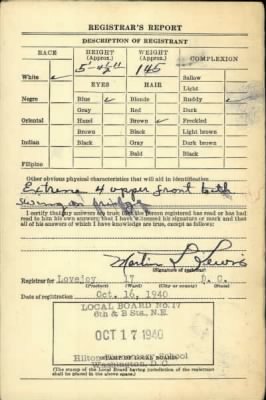 REGISTRAR'S REPORT
DESCRIPTION OF REGISTRANT
RACE
HEIGHT (Approx.)
WEIGHT (Approx.)
COMPLEXION
5'-4½"
145
White ✓
Sallow
EYES
HAIR
Light
Negro
Blue ✓
Blonde
Ruddy ✓
Gray
Red
Dark
Oriental
Hazel
Brown ✓
Freckled
Brown
Black
Light brown
Indian
Black
Gray
Dark brown
Bald
Black
Filipino
Other obvious physical characteristics that will aid in identification
Extreme 4 upper front teeth
I certify that my answers are true; that the person registered has read or has had read to him his own answers; that I have witnessed his signature or mark and that all of his answers of which I have knowledge are true, except as follows:
(Signature of registrar)
Registrar for Lovejoy 17 D. C.
(Precinct) (Ward) (City or county) (State)
Date of registration Oct. 16, 1940
LOCAL BOARD No. 17
6th & B Sts, N.E.
OCT 17 1940
School
Washington, D.C.
(STAMP OF LOCAL BOARD)
(The stamp of the Local Board having jurisdiction of the registrant shall be placed in the above space.)